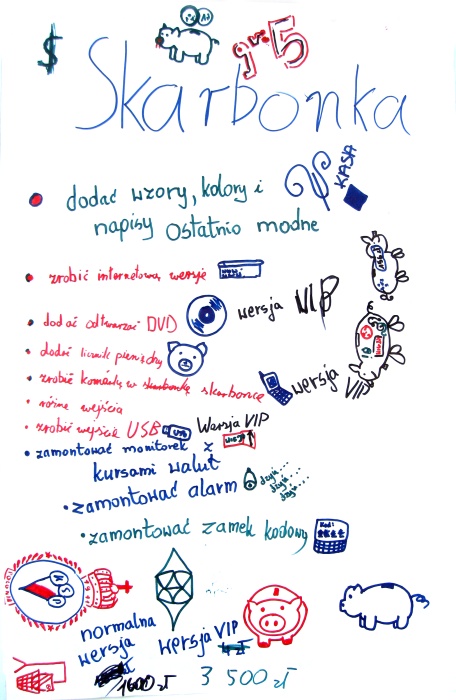 $
gr. 5
Skarbonka
KASA
dodać wzory, kolory i
napisy ostatnio modne
zrobić internetową wersję
dodać odtwarzacz DVD
wersja VIP
dodać licznik pieniędzy
zrobić komórkę w skarbonce
wersja VIP
różne wejścia
zrobić wejście USB
USB
Wersja VIP
zamontować monitorek z
kursami walut
zamontować alarm
dzyń...
dzyń...
dzyń...
zamontować zamek kodowy
Kod:
normalna
wersja
1600 zł
wersja VIP
3 500 zł